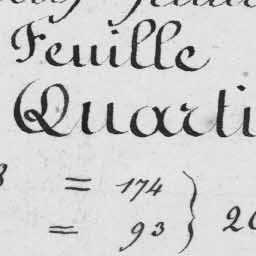 Feuille
Quarti
8 = 174
= 93 } 20